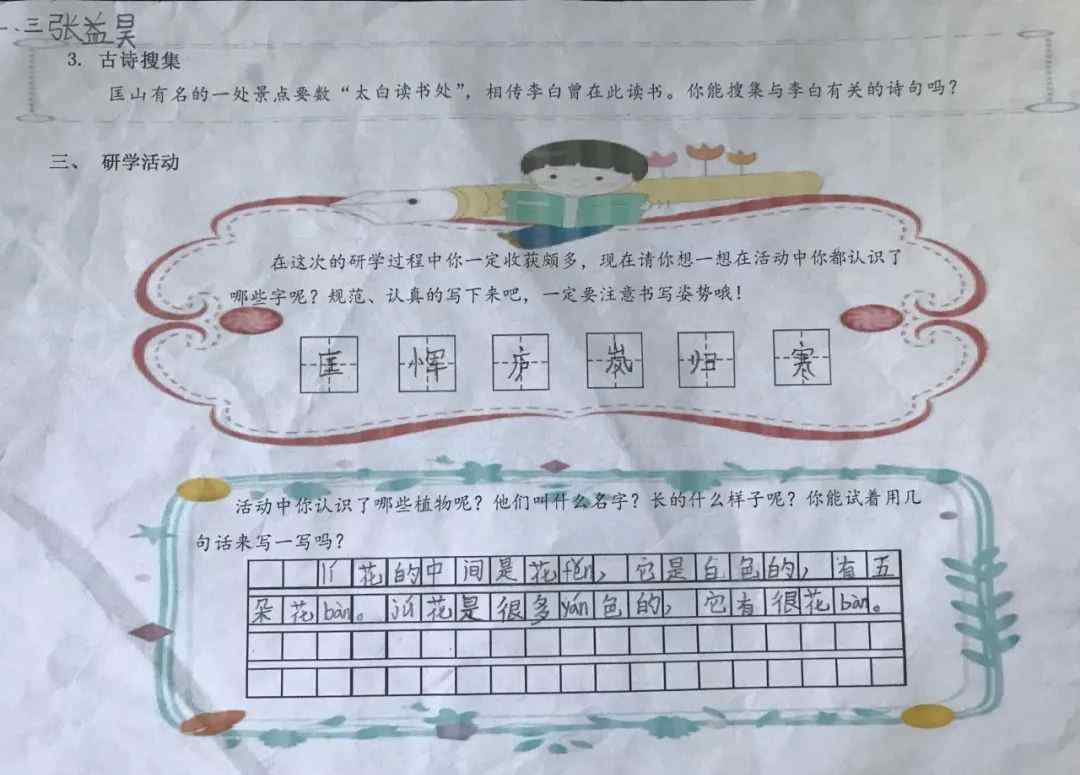 一.三 张益昊
3. 古诗搜集
匡山有名的一处景点要数“太白读书处”，相传李白曾在此读书。你能搜集与李白有关的诗句吗？
三、 研学活动
在这次的研学过程中你一定收获颇多，现在请你想一想在活动中你都认识了
哪些字呢？规范、认真的写下来吧，一定要注意书写姿势哦！
匡 恽 庐 岚 归 寒
活动中你认识了哪些植物呢？他们叫什么名字？长的什么样子呢？你能试着用几
句话来写一写吗？
lí花的中间是花fěn，它是白色的，有五
朵花bàn。jú花是很多yán色的，它有很花bàn。